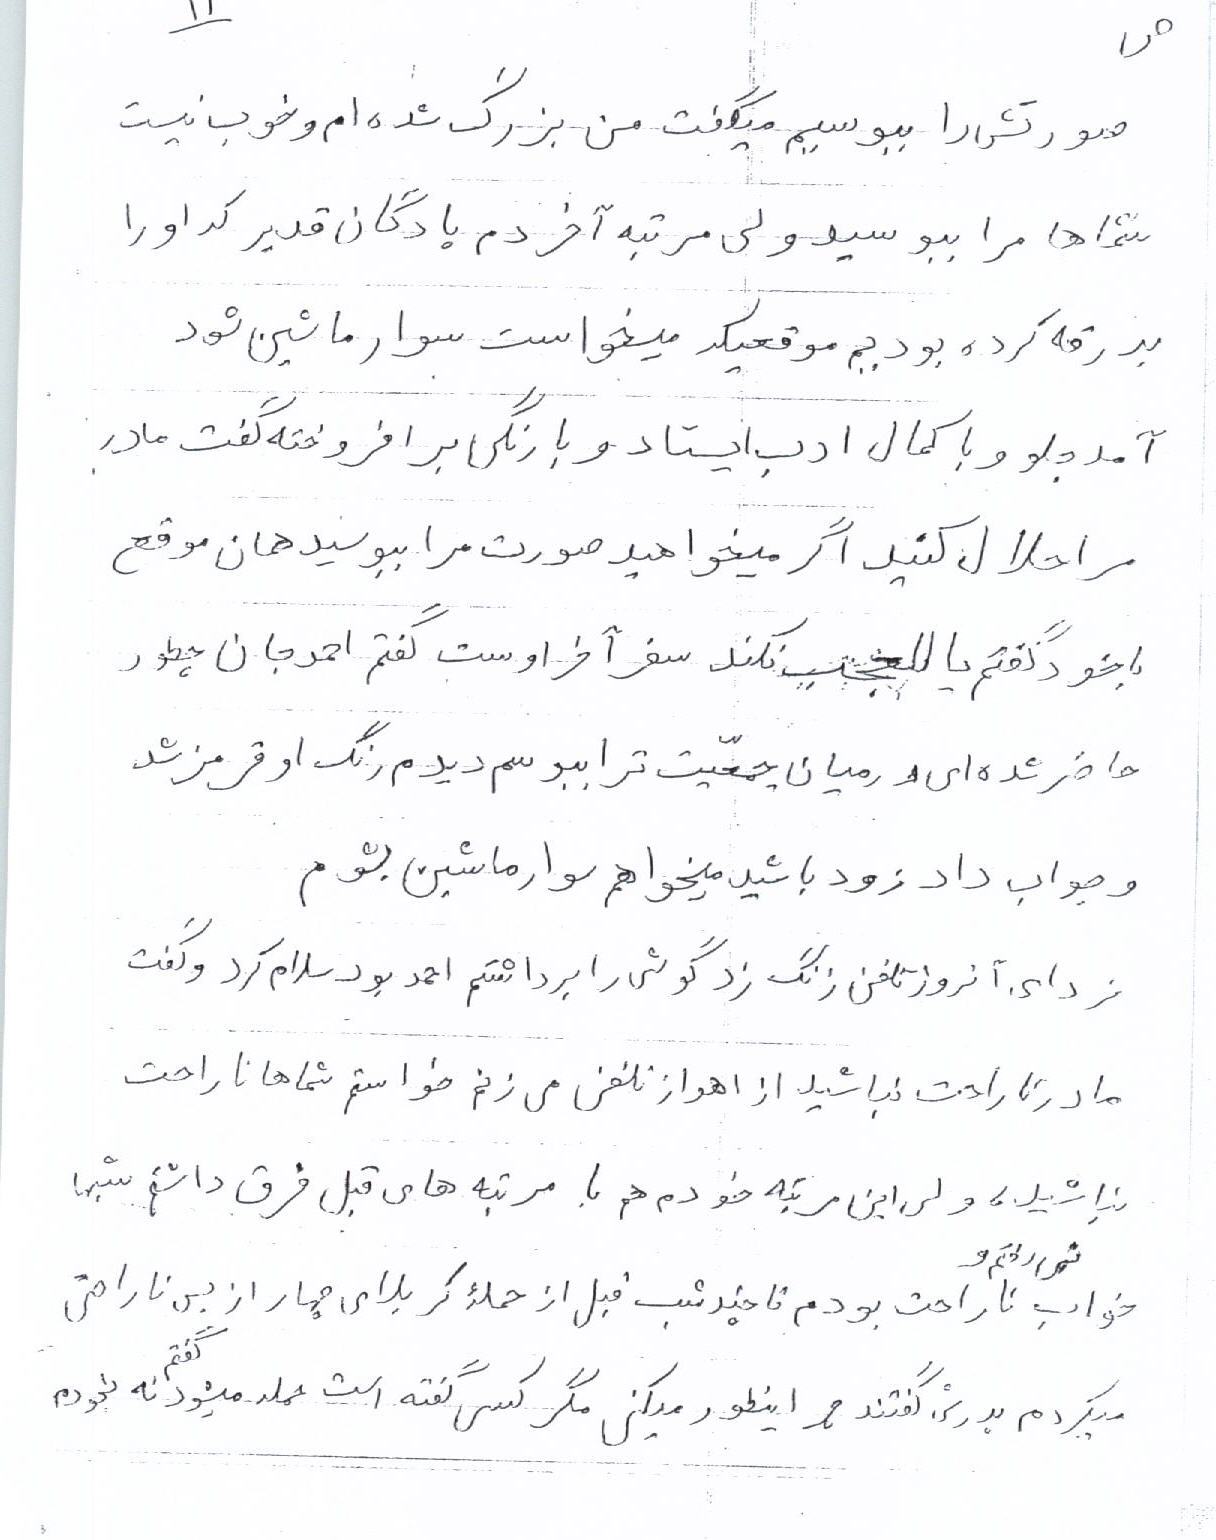 ۱۱
ص
صورتش را ببوسیم میگفت من بزرگ شده ام و خوب نیست
شماها مرا ببوسید ولی مرتبه آخر دم پادگان قدیر که او را
بدرقه کرده بودیم موقعیکه میخواست سوار ماشین شود
آمد جلو و با کمال ادب ایستاد و با رنگی برافروخته گفت مادر
مرا حلال کنید اگر میخواهید صورت مرا ببوسید همان موقع
با خود گفتم یا نکند سفر آخر اوست گفتم احمد جان چطور
حاضر شده ای در میان جمعیّت ترا ببوسم دیدم رنگ او قرمز شد
و جواب داد زود باشید میخواهم سوار ماشین بشوم
فردای آنروز تلفن زنگ زد گوشی را برداشتم احمد بود سلام کرد و گفت
مادر ناراحت نباشید از اهواز تلفن می زنم خواستم شماها ناراحت
نباشید، ولی این مرتبه خودم هم با مرتبه های قبل فرق داشتم شبها
نمی رفتم و
خواب ناراحت بودم تا چند شب قبل از حملهٔ کربلای چهار از بس ناراحتی
میکردم پدرش گفتند چرا اینطور میکنی مگر کسی گفته است حمله میشود گفتم نه بخودم